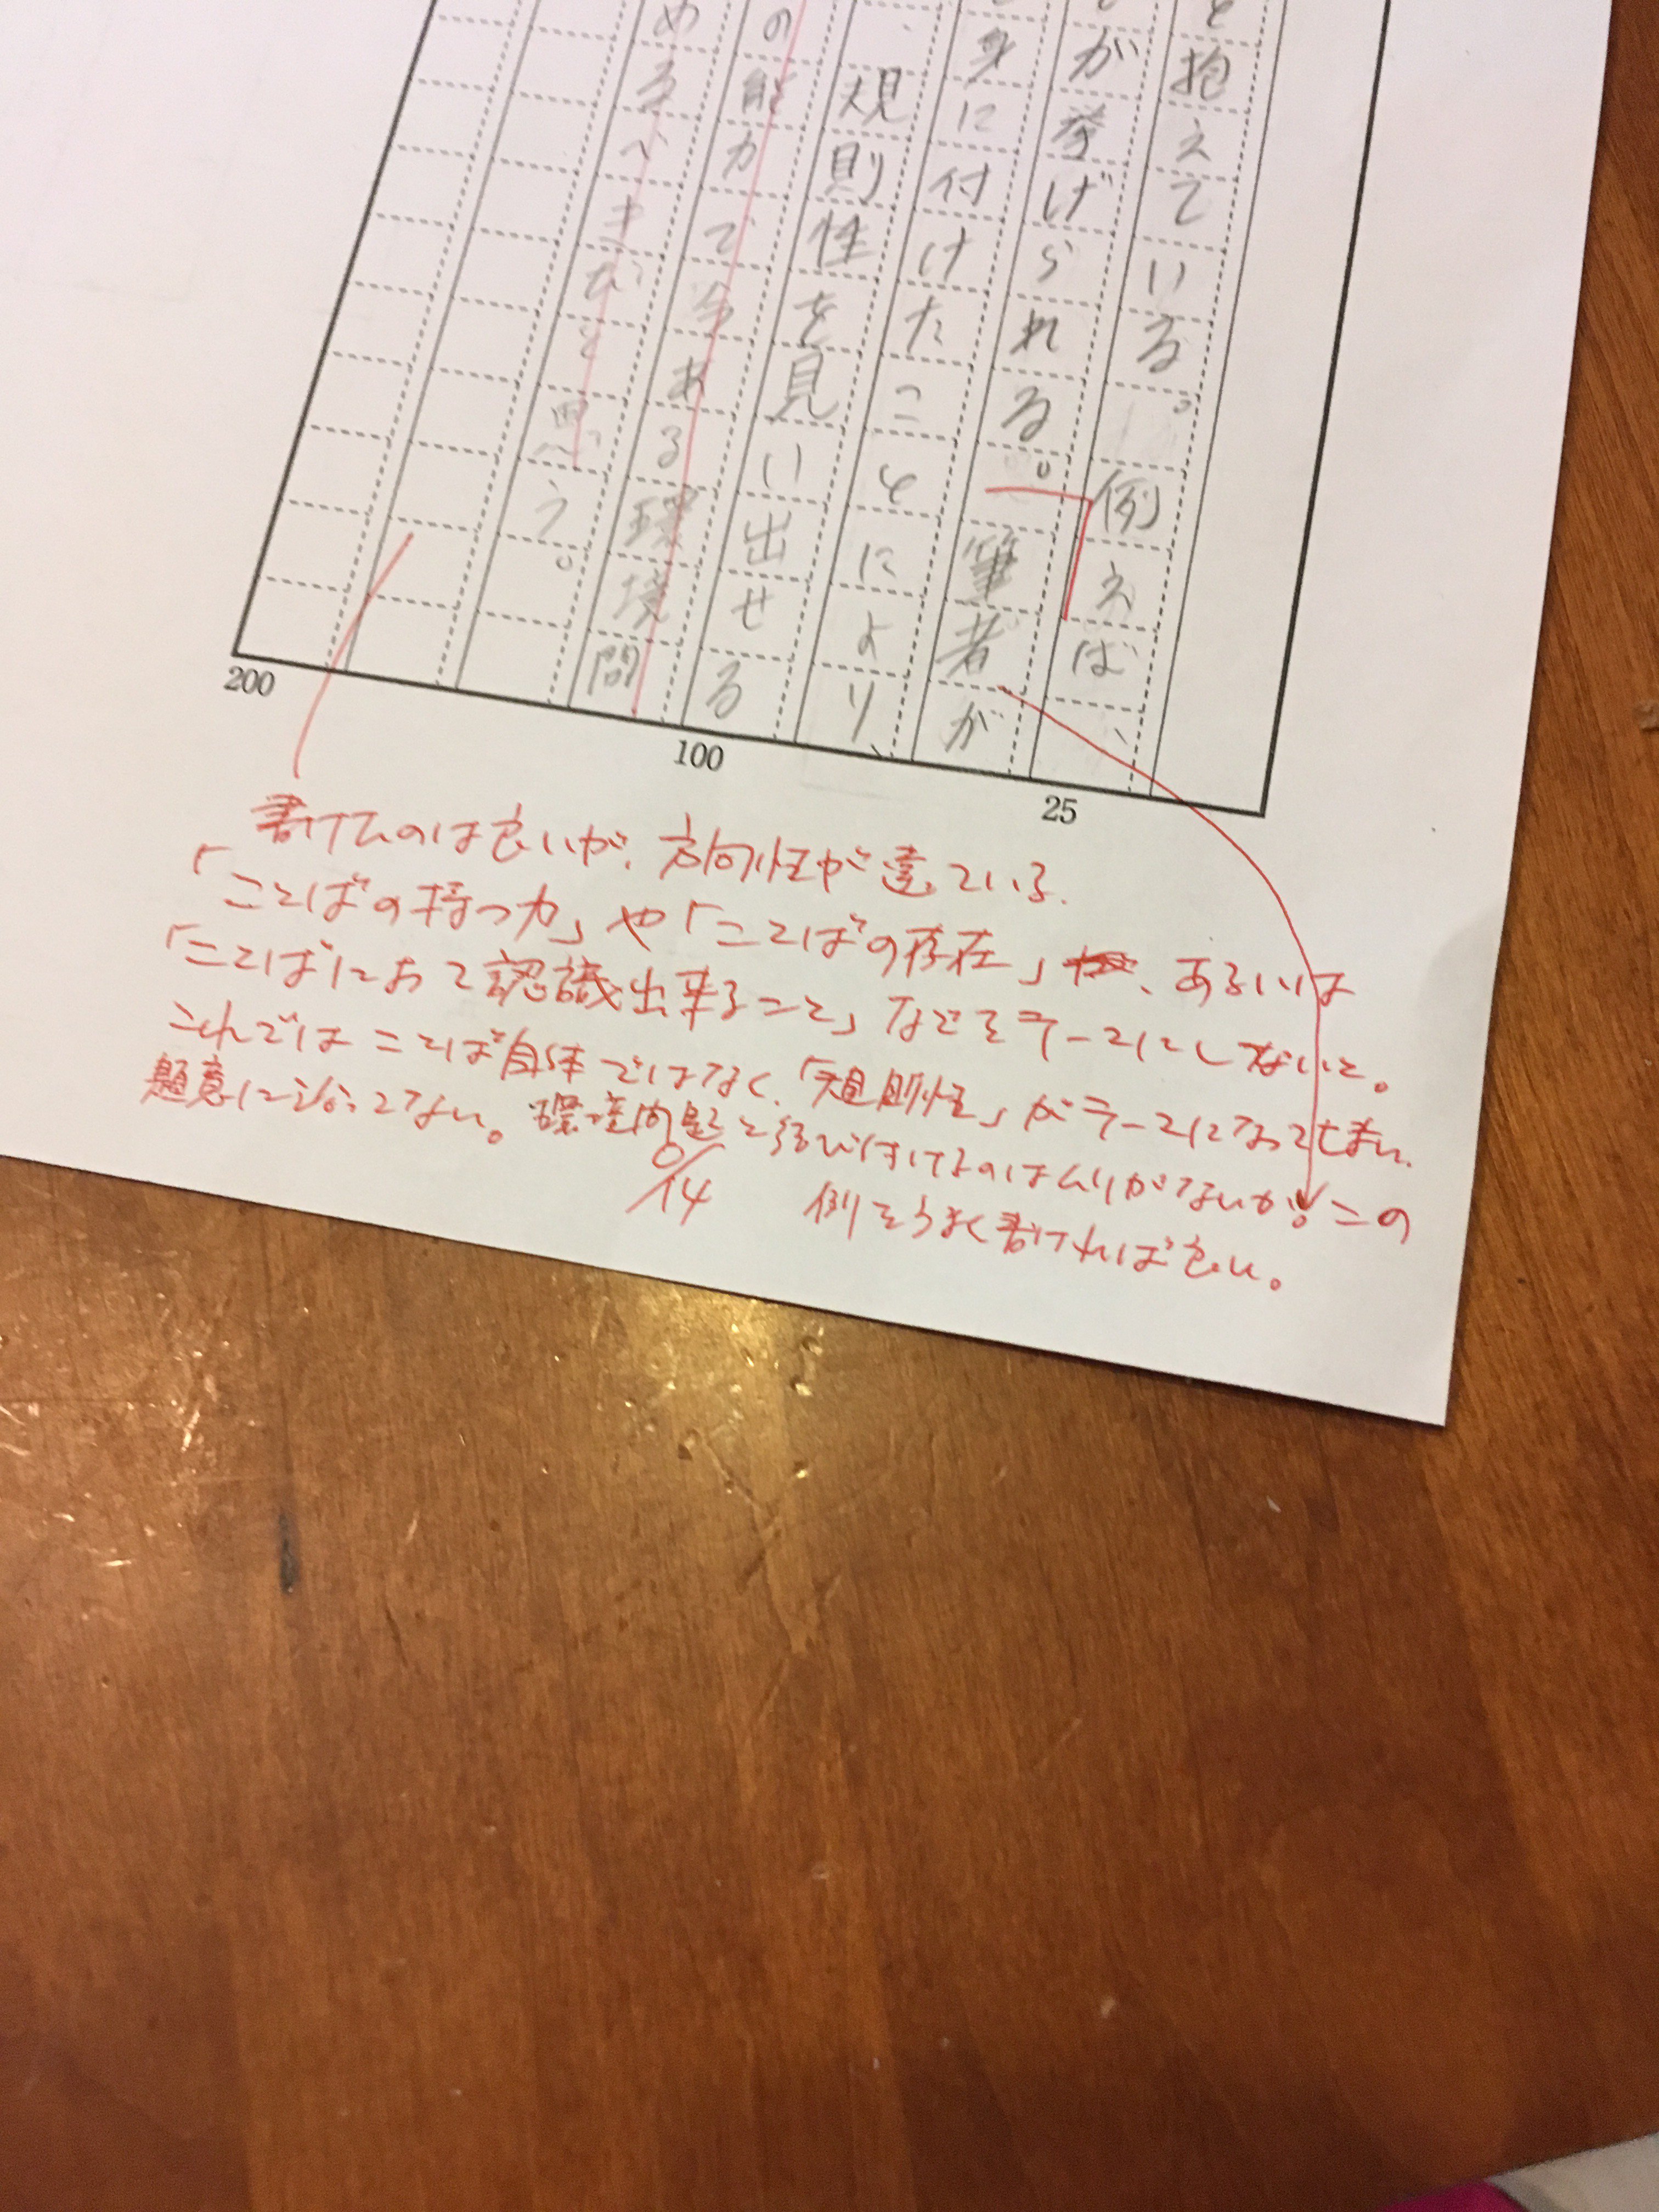 抱えている。例えば、
が挙げられる。筆者が
身に付けたことにより、
規則性を見い出せる
の能力で今ある環境問
めるべきだと思う。
25
100
200
書けたのは良いが、方向性が違っている。
「ことばの持つ力」や「ことばの存在」、あるいは
「ことばによって認識出来ること」などをテーマにしないと。
これではことば自体ではなく、「規則性」がテーマになってしまい、
題意に沿ってない。環境問題と結び付けるのはムリがないか。この
例をうまく書ければ良い。
0/14